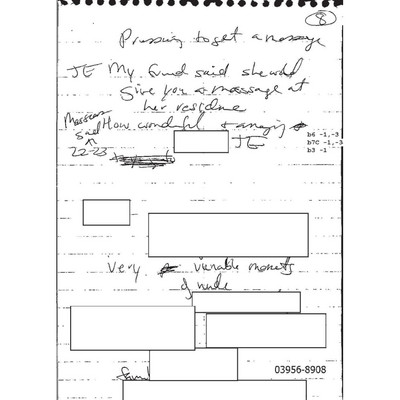 8
Pressing to get a message
JE My friend said she would
Give you a massage at
her residence
Masseuse
said How wonderful & amazing
22-23
JE
b6 -1,-3
b7C -1,-3
b3 -1
Very viewable moments
of nude
03956-8908